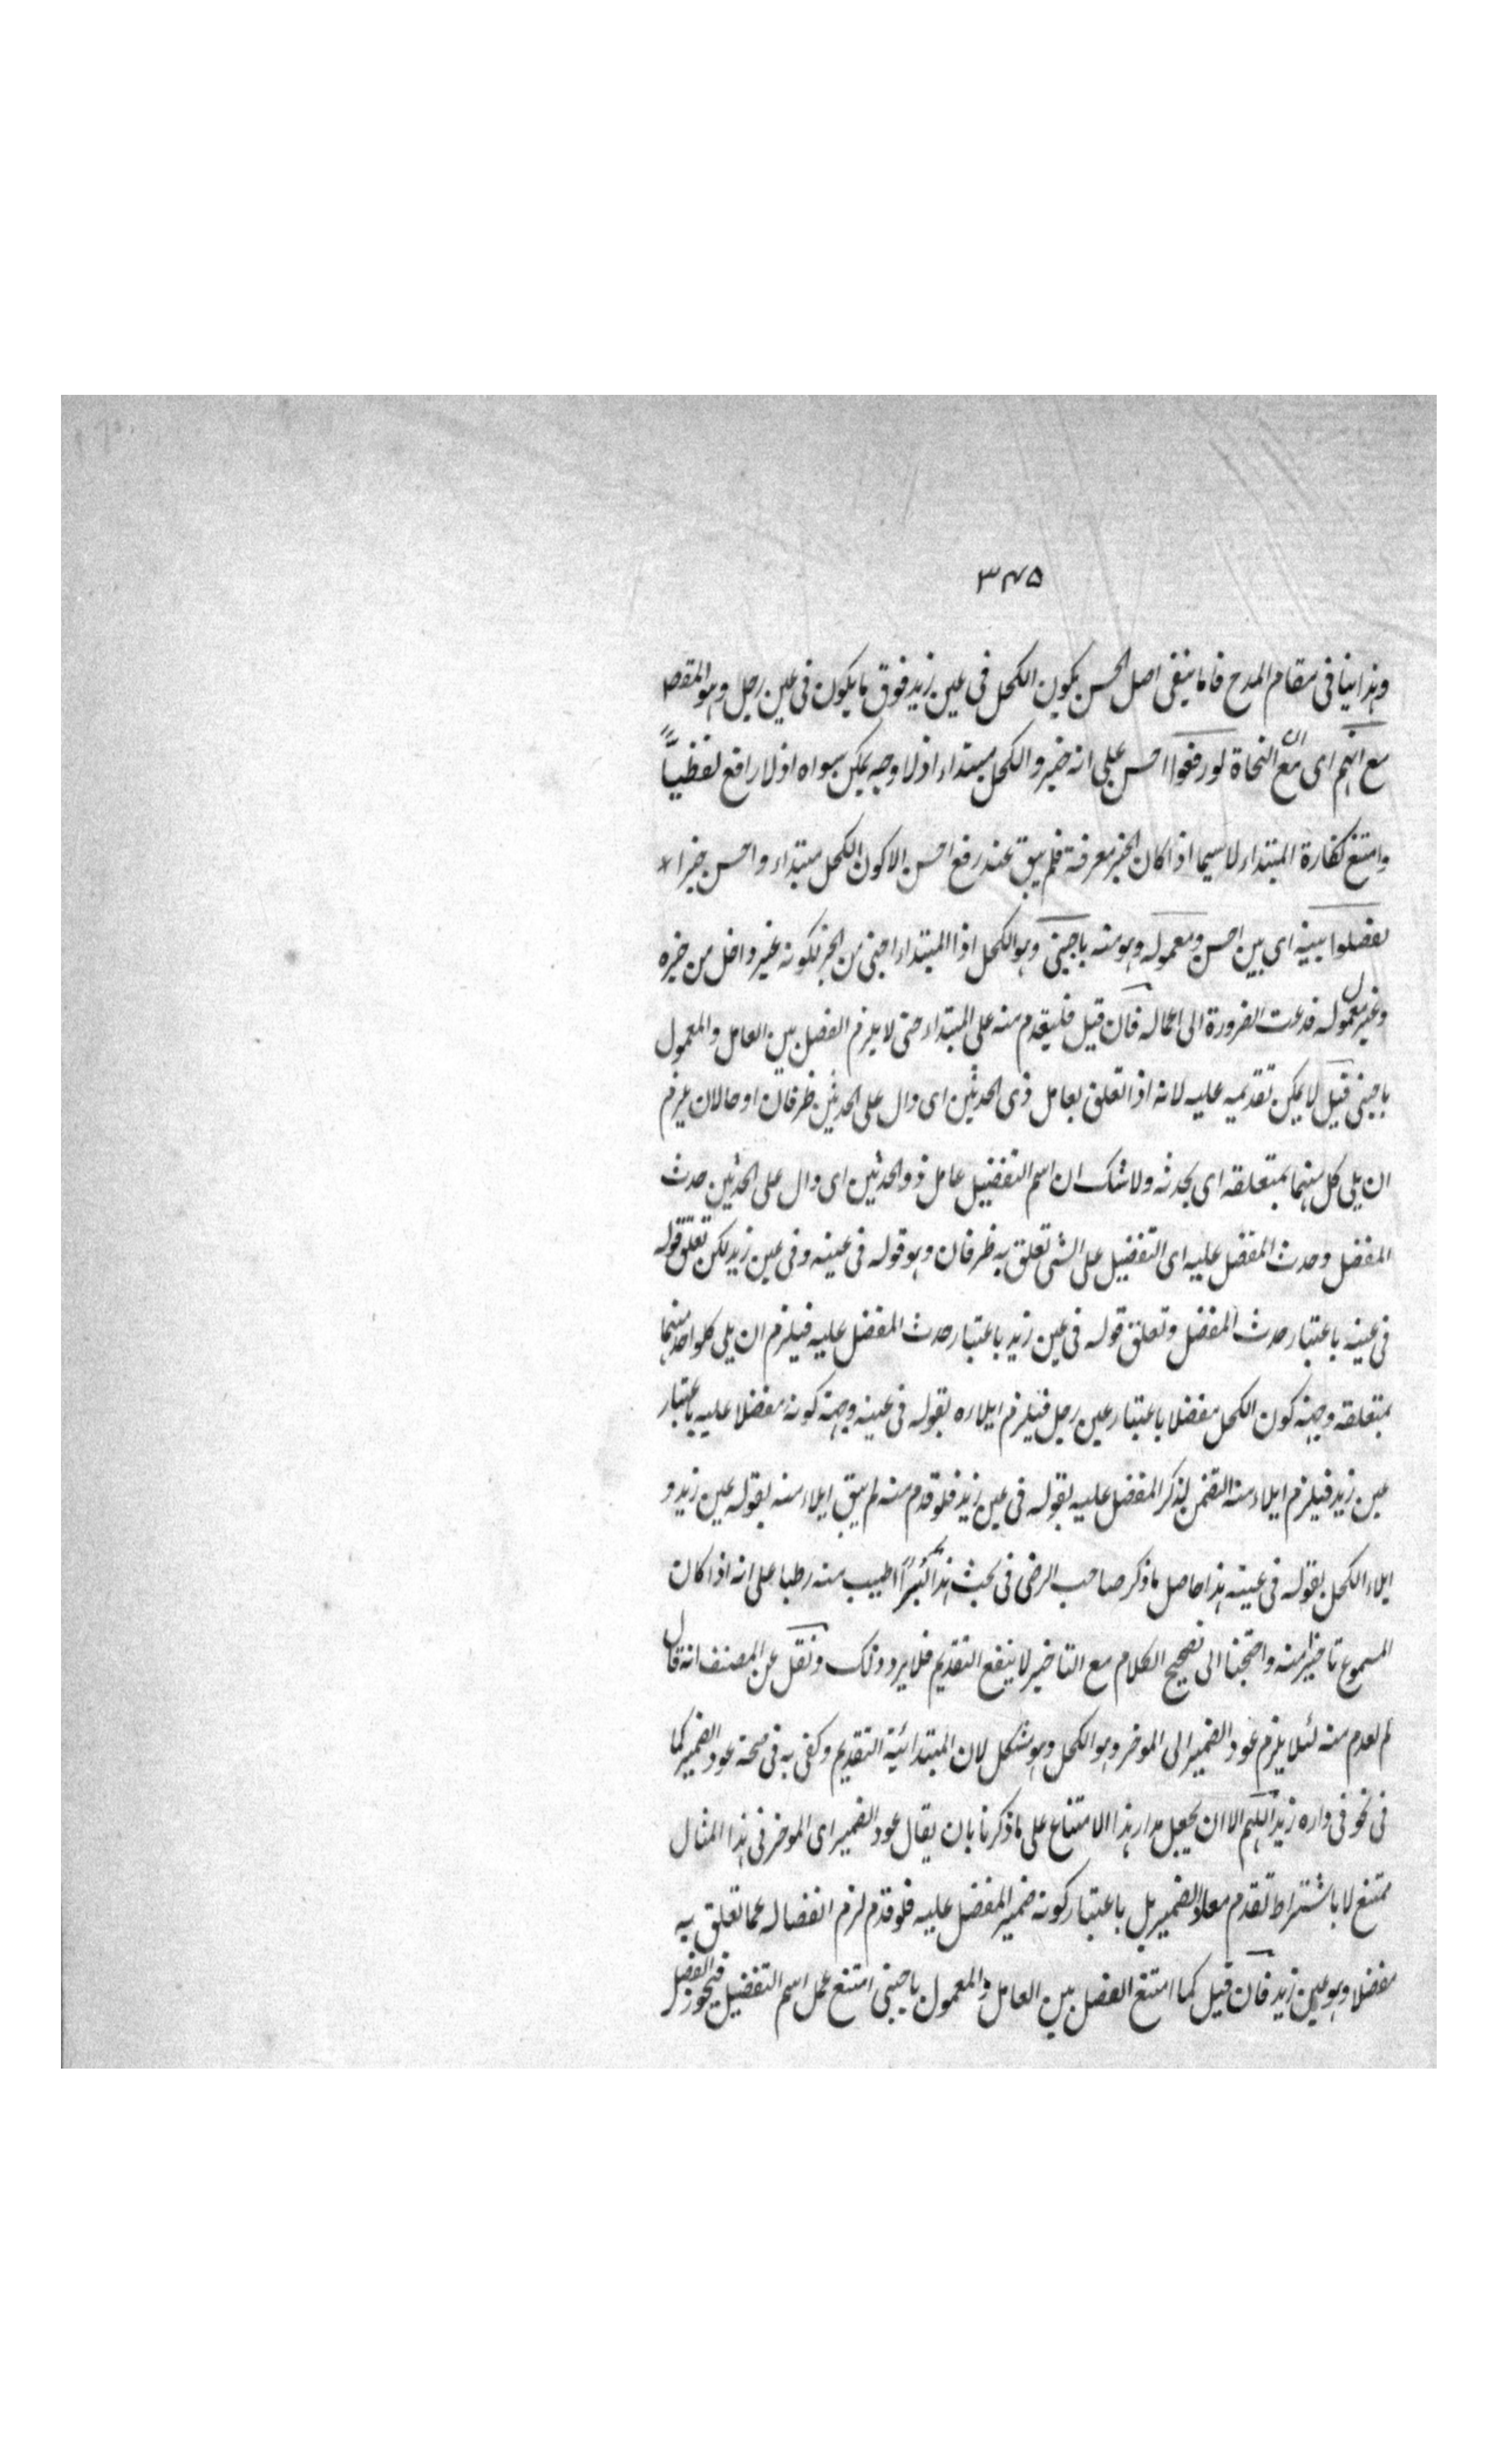 ٣٤٥
وهذا ينافى مقام المدح فاما ينفى اصل الحسن بكون الكحل فى عين زيد فوق ما يكون فى عين رجل وهو المقصو
مع انهم اى مع ان النحاة لو رفعوا احسن على انه خبر والكحل مبتداء اذ لا وجه يمكن سواه اذ لا رافع لفظيا
وامتنع المبتداء لا سيما اذا كان الخبر معرفة فلم يبق عند رفع احسن الا كون الكحل مبتداء واحسن خبرا
لفصلوا بينه اى بين احسن ومعموله وهو منه باجنبى وهو الكحل اذ المبتداء اجنبى من الخبر لكونه غير داخل من خبره
وغير معمول له فدعت الضرورة الى اعماله فان قيل فليقدم منه على المبتداء حتى لا يلزم الفصل بين العامل والمعمول
باجنبى قيل لا يمكن تقديمه عليه لانه اذا تعلق بعامل ذى الحدثين اى دال على الحدثين ظرفان او حالان يلزم
ان يلى كل منهما بمتعلقه اى بحدثه ولا شك ان اسم التفضيل عامل ذو الحدثين اى دال على الحدثين حدث
المفضل وحدث المفضل عليه اى التفضيل على الشى تعلق به ظرفان وهو قوله فى عينه وفى عين زيد لكن تعلق قوله
فى عينه باعتبار حدث المفضل وتعلق قوله فى عين زيد باعتبار حدث المفضل عليه فيلزم ان يلى كل واحد منهما
بمتعلقه وجهة كون الكحل مفضلا باعتبار عين رجل فيلزم ايلاءه بقوله فى عينه وجهة كونه مفضلا عليه باعتبار
عين زيد فيلزم ايلاء منه المتضمن لذكر المفضل عليه بقوله فى عين زيد فلو قدم منه لم يبق ايلاء منه بقوله عين زيد و
ايلاء الكحل بقوله فى عينه هذا حاصل ما ذكر صاحب الرضى فى بحث هذا بسرا اطيب منه رطبا على انه اذا كانت
المسموع تاخير منه واحتجنا الى تصحيح الكلام مع التاخير لا ينفع التقديم فلا يرد ذلك ونقل عن المصنف انه قال
لم يقدم منه لئلا يلزم عود الضمير الى الموخر وهو الكحل وهو مشكل لان المبتدا نية التقديم وكفى به فى صحة عود الضمير كما
فى نحو فى داره زيد اللهم الا ان يجعل مدار هذا الامتناع على ما ذكرنا بان يقال عود الضمير اى الموخر فى هذا المثال
ممتنع لا باشتراط تقدم معاد الضمير بل باعتبار كونه ضمير المفضل عليه فلو قدم لزم انفصاله عما تعلق به
مفضلا وهو عين زيد فان قيل كما امتنع الفصل بين العامل والمعمول باجنبى امتنع عمل اسم التفضيل فيجوز الفصل